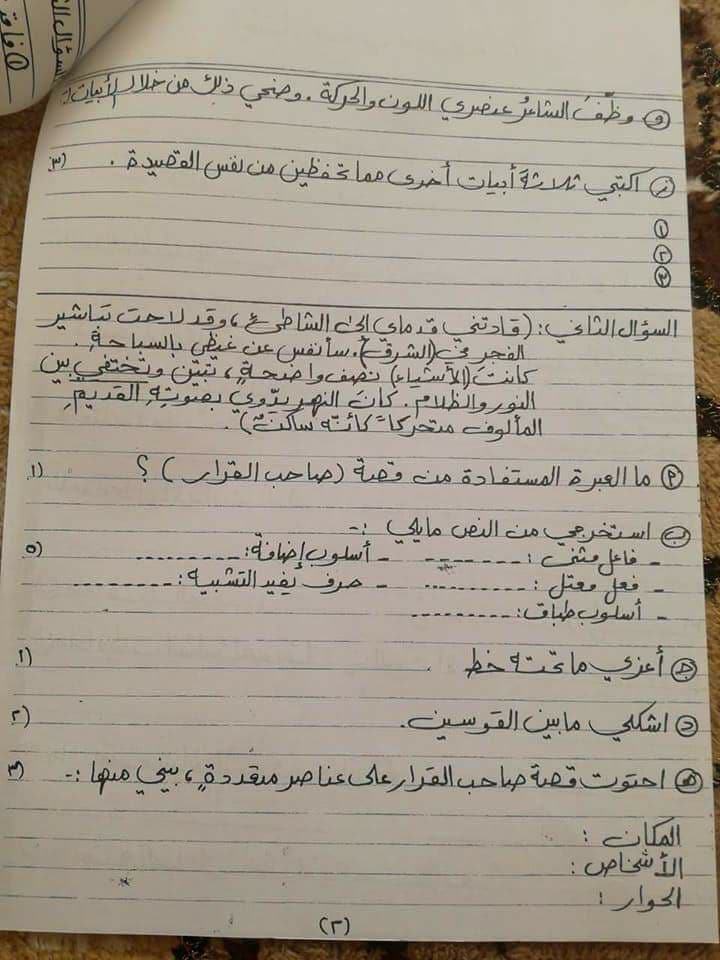 السؤال ال
① فا
و) وظّفَ الشاعرُ عنصري اللون والحركة . وضحي ذلك من خلال الأبيات؟
ز) اكتبي ثلاثة أبيات أخرى مما تحفظين من نفس القصيدة . (٣
①
②
③
السؤال الثاني: (قادتني قدماي إلى الشاطئ ، وقد لاحت تباشير
الفجرِ في (الشرق) . سأنفس عن غيظي بالسباحةِ .
كانت (الأشياء) نصف واضحةٍ ، تبين وتختفي بين
النور والظلام . كان النهر يدّوي بصوتِهِ القديمِ
المألوف متحركاً كأنّه ساكنٌ) .
أ) ما العبرة المستفادة من قصة (صاحب القرار) ؟ (١
ب) استخرجي من النص مايلي :-
- فاعل مثنى : -------- - أسلوب إضافة: --------- (٥
- فعل معتل : --------- - حرف يفيد التشبيه : ---------
- أسلوب طباق: ----------
ج) أعربي ما تحته خط . (١
د) اشكلي مابين القوسين . (٢
هـ) احتوت قصة صاحب القرار على عناصر متعددةٍ ، بيني منها :- (٣
المكان :
الأشخاص :
الحوار :
(٣)